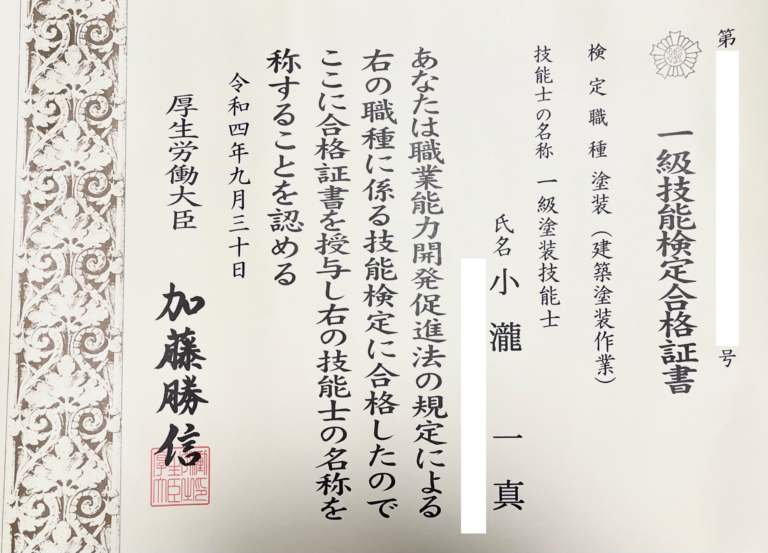 第 号
一級技能検定合格証書
検定職種 塗装（建築塗装作業）
技能士の名称 一級塗装技能士
氏名 小瀧 一真
あなたは職業能力開発促進法の規定による
右の職種に係る技能検定に合格したので
ここに合格証書を授与し右の技能士の名称を
称することを認める
令和四年九月三十日
厚生労働大臣 加藤勝信